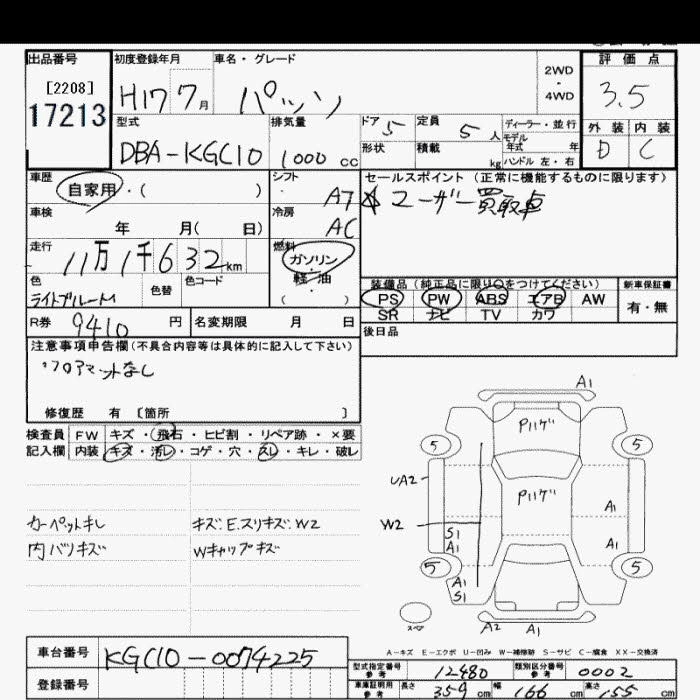 出品番号
[2208]
17213
初度登録年月
H17 7月
車名・グレード
パッソ
2WD
・
4WD
評価点
3.5
外装 内装
D C
型式
DBA-KGC10
排気量
1000 cc
ドア 5
形状
定員 5 人
積載 kg
ディーラー・並行
モデル年式 年
ハンドル 左・右
車歴
自家用・( )
シフト
AT
セールスポイント (正常に機能するものに限ります)
☆ユーザー買取車
車検
年 月( 日)
冷房
AC
走行
11万1千632km
燃料
ガソリン
・
軽・油
( )
色
ライトブルーM
色替
色コード
装備品 (純正品に限り○をつけてください)
PS PW ABS エアB AW
SR ナビ TV カワ
新車保証書
有・無
R券 9410 円
名変期限 月 日
後日品
注意事項申告欄(不具合内容等は具体的に記入して下さい)
フロアマットなし
修復歴 有 〔箇所 〕
検査員
記入欄
FW キズ・飛石・ヒビ割・リペア跡・×要
内装 キズ・汚レ・コゲ・穴・スレ・キレ・破レ
カーペットキレ
内バリキズ
キズ.E.スリキズ.W2
Wキャップキズ
A1
Pハゲ
5
5
UA2
Pハゲ
A1
W2
S1
A1
A1
5
5
A1
S1
スペア
A2
A1
A-キズ E-エクボ U-凹み W-補修跡 S-サビ C-腐食 XX-交換済
車台番号
KGC10-0074225
登録番号
型式指定番号
参考
12480
類別区分番号
参考
0002
車庫証明用
参考
長さ 359 cm
幅 166 cm
高さ 155 cm